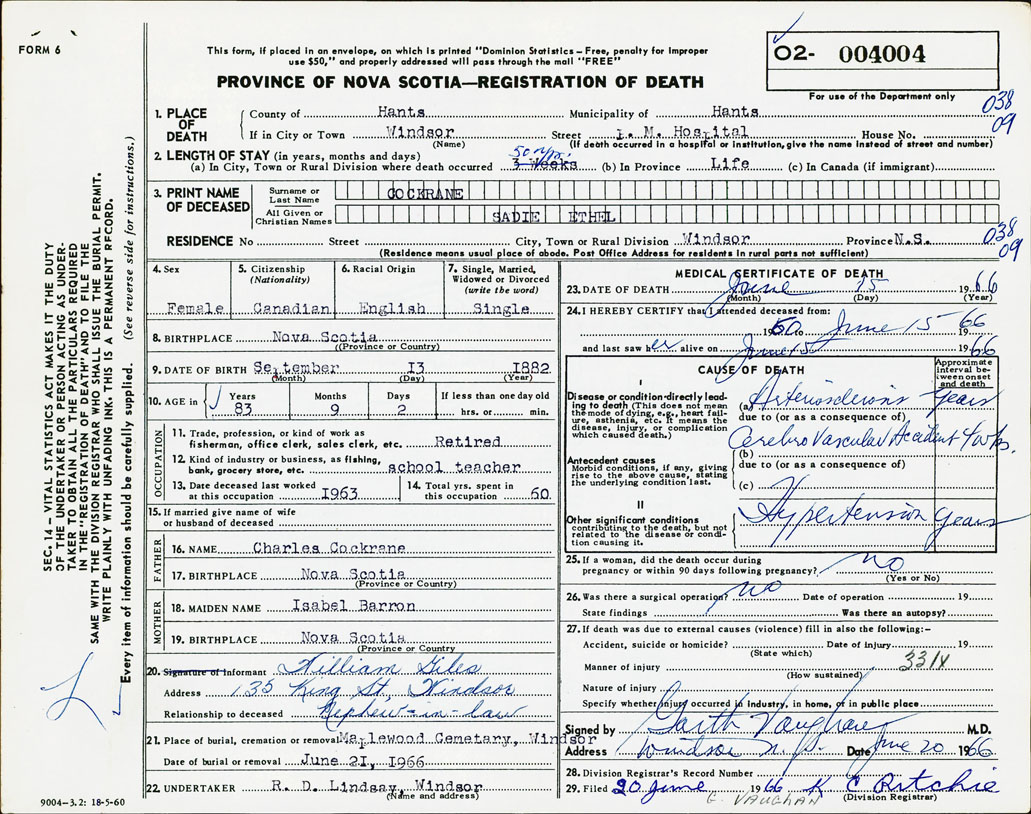 FORM 6
This form, if placed in an envelope, on which is printed "Dominion Statistics – Free, penalty for improper
use $50," and properly addressed will pass through the mail "FREE"
PROVINCE OF NOVA SCOTIA—REGISTRATION OF DEATH
02- 004004
For use of the Department only
038
09
SEC. 14 – VITAL STATISTICS ACT MAKES IT THE DUTY
OF THE UNDERTAKER OR PERSON ACTING AS UNDER-
TAKER TO OBTAIN ALL THE PARTICULARS REQUIRED
IN THE "REGISTRATION OF DEATH" AND TO FILE THE
SAME WITH THE DIVISION REGISTRAR WHO SHALL ISSUE THE BURIAL PERMIT.
WRITE PLAINLY WITH UNFADING INK. THIS IS A PERMANENT RECORD.
Every item of information should be carefully supplied. (See reverse side for instructions.)
1. PLACE OF DEATH
County of Hants Municipality of Hants
If in City or Town Windsor Street P. M. Hospital House No.
(Name) (If death occurred in a hospital or institution, give the name instead of street and number)
2. LENGTH OF STAY (in years, months and days)
50 yrs.
(a) In City, Town or Rural Division where death occurred 3 Weeks (b) In Province Life (c) In Canada (if immigrant)
3. PRINT NAME OF DECEASED
Surname or Last Name COCKRANE
All Given or Christian Names SADIE ETHEL
RESIDENCE No Street City, Town or Rural Division Windsor Province N.S.
038
09
(Residence means usual place of abode. Post Office Address for residents in rural parts not sufficient)
4. Sex
Female
5. Citizenship (Nationality)
Canadian
6. Racial Origin
English
7. Single, Married, Widowed or Divorced (write the word)
Single
8. BIRTHPLACE Nova Scotia
(Province or Country)
9. DATE OF BIRTH September 13 1882
(Month) (Day) (Year)
10. AGE in Years 83 Months 9 Days 2 If less than one day old hrs. or min.
OCCUPATION
11. Trade, profession, or kind of work as
fisherman, office clerk, sales clerk, etc. Retired
12. Kind of industry or business, as fishing,
bank, grocery store, etc. school teacher
13. Date deceased last worked at this occupation 1963
14. Total yrs. spent in this occupation 60
15. If married give name of wife
or husband of deceased
FATHER
16. NAME Charles Cockrane
17. BIRTHPLACE Nova Scotia
(Province or Country)
MOTHER
18. MAIDEN NAME Isabel Barron
19. BIRTHPLACE Nova Scotia
(Province or Country)
20. Signature of Informant William Giles
Address 135 King St, Windsor
Relationship to deceased Nephew-in-law
21. Place of burial, cremation or removal Maplewood Cemetary, Windsor
Date of burial or removal June 21, 1966
22. UNDERTAKER R. D. Lindsay, Windsor
(Name and address)
9004–3.2: 18-5-60
MEDICAL CERTIFICATE OF DEATH
23. DATE OF DEATH June 15 1966
(Month) (Day) (Year)
24. I HEREBY CERTIFY that I attended deceased from:
1960 June 15 66
and last saw her alive on June 15 1966
CAUSE OF DEATH
Approximate interval between onset and death
I
Disease or condition directly lead-
ing to death (This does not mean
the mode of dying, e.g., heart fail-
ure, asthenia, etc. It means the
disease, injury, or complication
which caused death.)
(a) Arteriosclerosis Years
due to (or as a consequence of)
Cerebro Vascular Accident 4 wks.
Antecedent causes
Morbid conditions, if any, giving
rise to the above cause, stating
the underlying condition last.
(b)
due to (or as a consequence of)
(c)
II
Other significant conditions
contributing to the death, but not
related to the disease or condi-
tion causing it.
Hypertension Years
25. If a woman, did the death occur during
pregnancy or within 90 days following pregnancy? no
(Yes or No)
26. Was there a surgical operation? no Date of operation 19
State findings Was there an autopsy?
27. If death was due to external causes (violence) fill in also the following:–
Accident, suicide or homicide? Date of injury 19
(State which)
331X
Manner of injury
(How sustained)
Nature of injury
Specify whether injury occurred in industry, in home, or in public place
Signed by Garth Vaughan M.D.
Address Windsor N.S. Date June 20 1966
28. Division Registrar's Record Number
29. Filed 20 June 1966 K C Ritchie
G. VAUGHAN (Division Registrar)